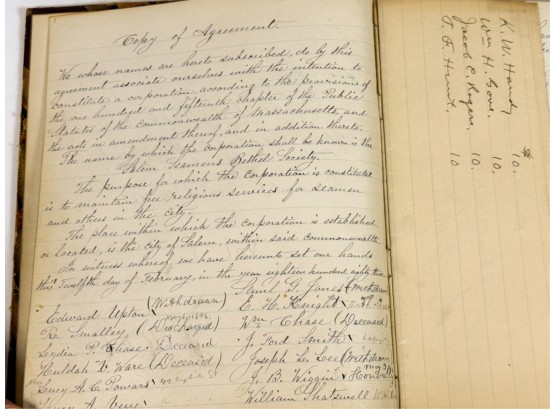 Copy of Agreement.
We whose names are hereto subscribed, do by this
agreement associate ourselves with the intention to
constitute a corporation, according to the provisions of
the one hundred and fifteenth chapter of the Public
Statutes of the Commonwealth of Massachusetts, and
the acts in amendment thereof, and in addition thereto.
The name by which the corporation shall be known is the
Salem Seamens Bethel Society.
The purpose for which the corporation is constituted
is to maintain free religious services for Seamen
and others in the city.
The place within which the corporation is established
or located, is the city of Salem, within said commonwealth
In witness whereof we have hereunto set our hands
this Twelfth day of February, in the year eighteen hundred eighty three
Edward Upton (Withdrawn)
Smalley (Discharged)
Lydia P. Chase Deceased
Huldah V. Ware (Deceased)
Lucy A. C. Powars
Saml G. Jones (Withdrawn
E. H. Knight
Wm Chase (Deceased)
J. Ford Smith
Joseph Ls Lee (Withdrawn
J. B. Wiggin
William Thatswell
$
K. W. Handy 10.
Wm H. Gove. 10.
Jacob C. Rogers. 10.
T. F. Hunt. 10